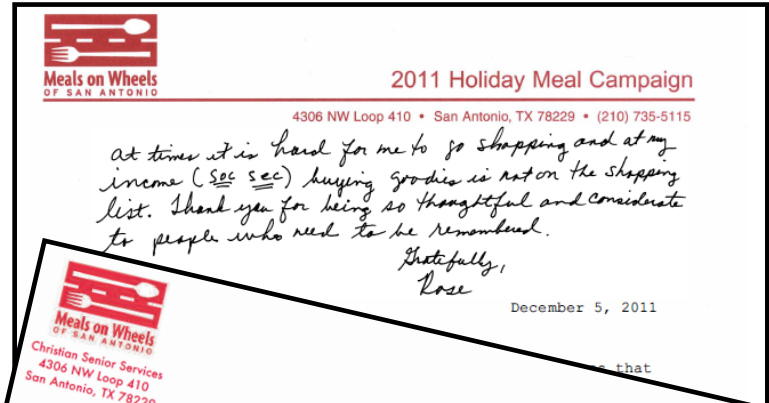 Meals on Wheels
OF SAN ANTONIO
2011 Holiday Meal Campaign
4306 NW Loop 410 • San Antonio, TX 78229 • (210) 735-5115
at times it is hard for me to go shopping and at my
income (Soc Sec) buying goodies is not on the shopping
list. Thank you for being so thoughtful and considerate
to people who need to be remembered.
Gratefully,
Rose
December 5, 2011
that
Meals on Wheels
OF SAN ANTONIO
Christian Senior Services
4306 NW Loop 410
San Antonio, TX 78229